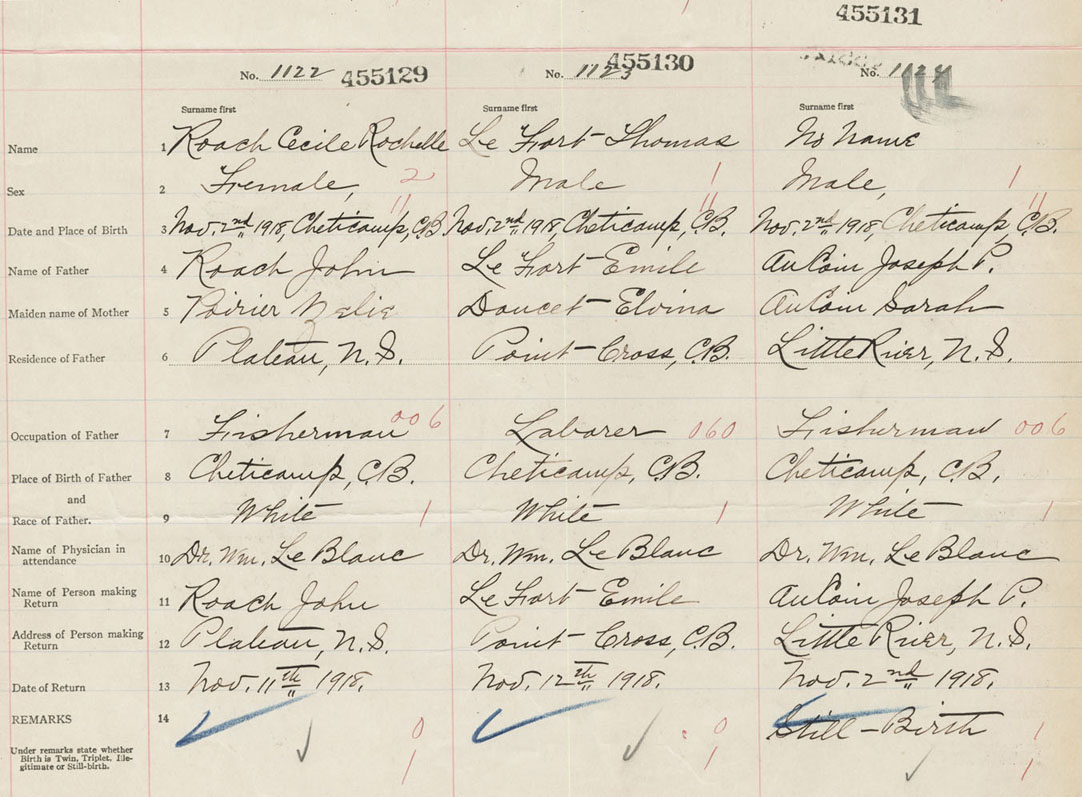 455131
No. 1122 455129 No. 1123 455130 No.
Surname first Surname first Surname first
Name 1 Roach Cecile Rochelle Le Fort Thomas No Name
Sex 2 Female, 2 Male 1 Male, 1
11 11 11
Date and Place of Birth 3 Nov. 2nd 1918, Cheticamp, C.B. Nov. 2nd 1918, Cheticamp, C.B. Nov. 2nd 1918, Cheticamp, C.B.
Name of Father 4 Roach John Le Fort Emile AuCoin Joseph P.
Maiden name of Mother 5 Poirier Doucet Elvina AuCoin Sarah
Residence of Father 6 Plateau, N.S. Point Cross, C.B. Little River, N.S.
Occupation of Father 7 Fisherman 006 Laborer 060 Fisherman 006
Place of Birth of Father 8 Cheticamp, C.B. Cheticamp, C.B. Cheticamp, C.B.
and
Race of Father. 9 White 1 White 1 White 1
Name of Physician in
attendance 10 Dr. Wm. Le Blanc Dr. Wm. Le Blanc Dr. Wm. Le Blanc
Name of Person making
Return 11 Roach John Le Fort Emile AuCoin Joseph P.
Address of Person making
Return 12 Plateau, N.S. Point Cross, C.B. Little River, N.S.
Date of Return 13 Nov. 11th 1918. Nov. 12th 1918. Nov. 2nd 1918.
REMARKS 14 0 0 Still-Birth 1
Under remarks state whether
Birth is Twin, Triplet, Ille-
gitimate or Still-birth. 1 1 1